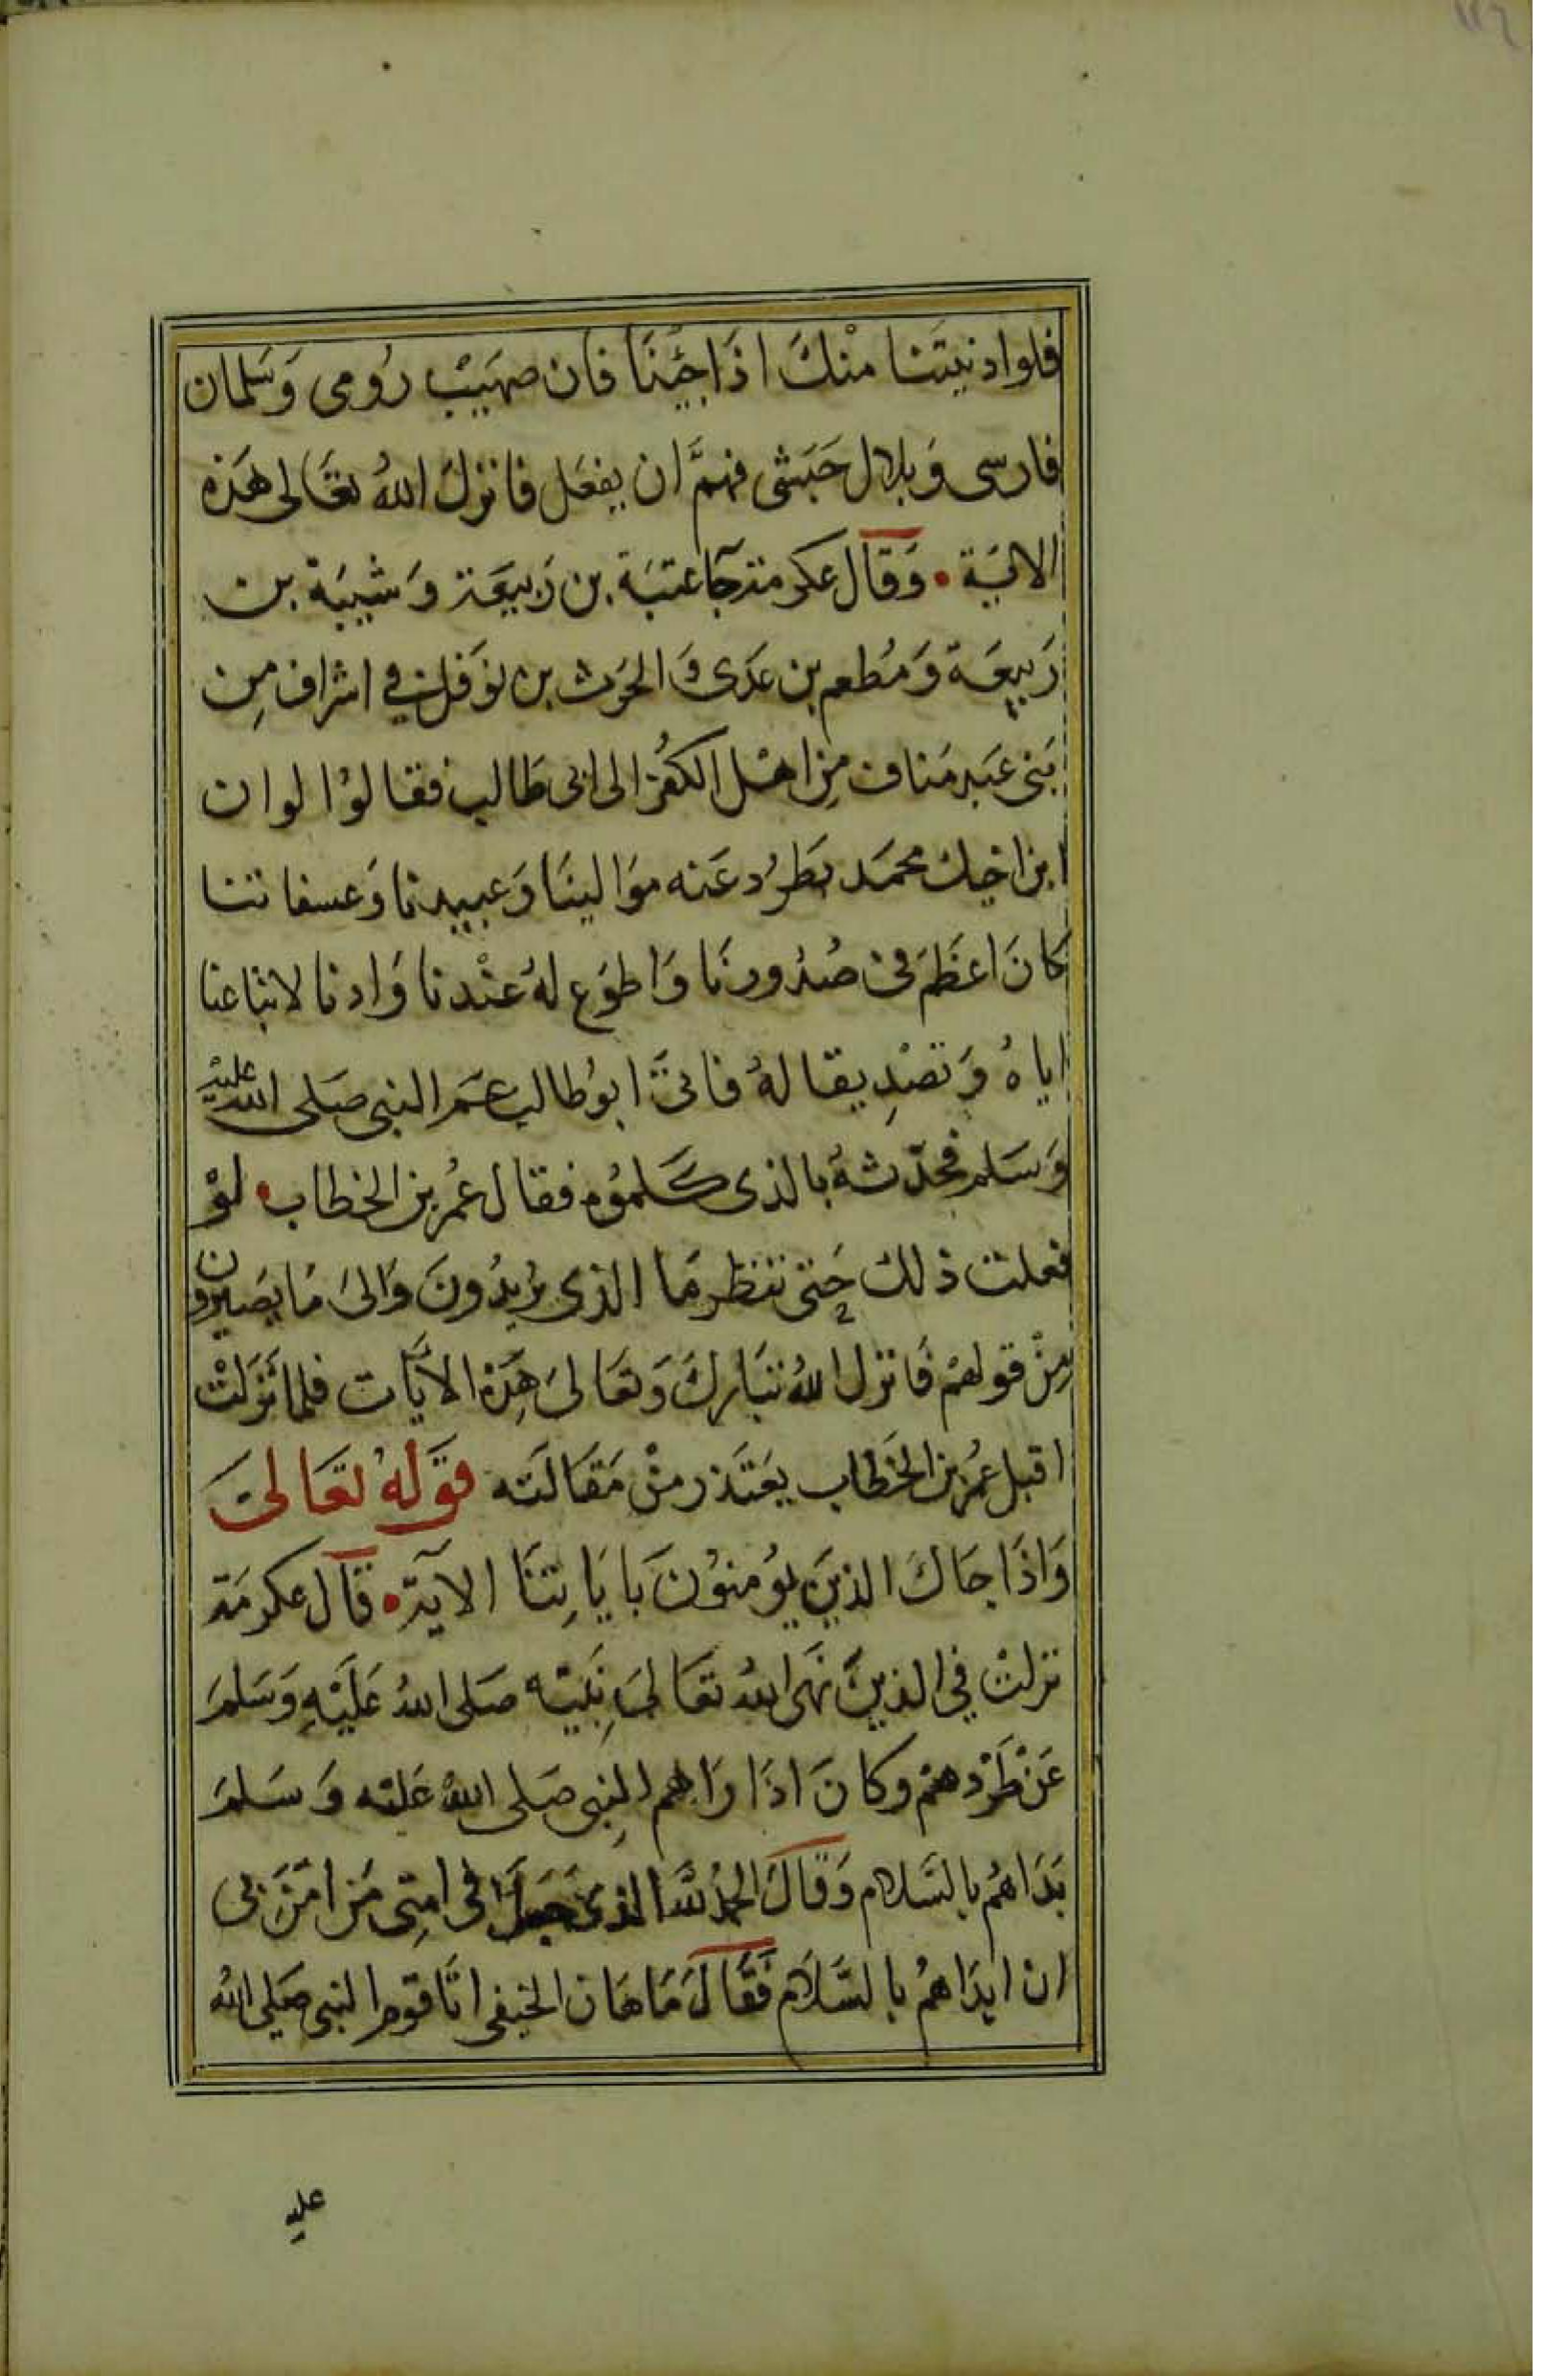 ١١٦
فلوادنيتَنا منْكَ اذَاجِئنَا فان صهَيبْ رُومى وَسَلمان
فارسى وَبلال حَبَشى فهمَّ ان يفعَل فانزلَ اللهُ تعَالى هَذه
الايَة • وَقال عكرمة جآ عتبَة بن رَبيعَة وَشيبَة بن
رَبيعَة وَمُطعم بن عَدى وَالحرَث بن نوَفل في اشراف مِن
بَنى عَبد مَناف مِن اهْل الكفُر الى ابى طَالب فقالوُا لوان
ابن اخيك محمَد يَطرُد عَنه موَالينَا وَعبيدنا وَعسفاتنا
كانَ اعظَم فى صُدُورنَا وَاطوَع لهُ عنْدنا وَادنا لاتباعنا
اياهُ وَتصْدِيقا لهُ فاتىَ ابوُطالب عَم النبى صَلى الله عليه
وَسَلم فحدّثهُ بالذى كَلموُه فقال عُمر بن الخطاب • لوْ
فعلت ذلك حَتى تنظر مَا الذى يُريدُونَ وَالىَ مَا يصَيرون
مِنْ قولهمْ فَانزل اللهُ تبَارك وَتعَالىَ هَذه الاَيَات فلما نَزلتْ
اقبل عُمر بن الخَطاب يعَتذر منْ مَقَالَته قوَلهُ تعَالىَ
وَاذَا جَاكَ الذينَ يوُمنوُنَ بايَاتِنَا الآية • قال عكرمَة
نزلتْ في الذينَ نهَى اللهُ تعَالىَ نبَيّه صَلى اللهُ عَليَهِ وَسَلمَ
عَنْ طَرْدهمْ وكانَ اذَا رَاهم النبِى صَلى اللهُ عَليْه وَسَلمَ
بَدَاهُم بالسَّلام وَقالَ الحمدُ لله الذى جَعلَ فى امتِى مَن امَرَنى
ان ابدَاهُمْ بالسَّلام فَقَالَ مَاهَان الحنفى اتَا قوم النبى صَلى اللهُ
عليه